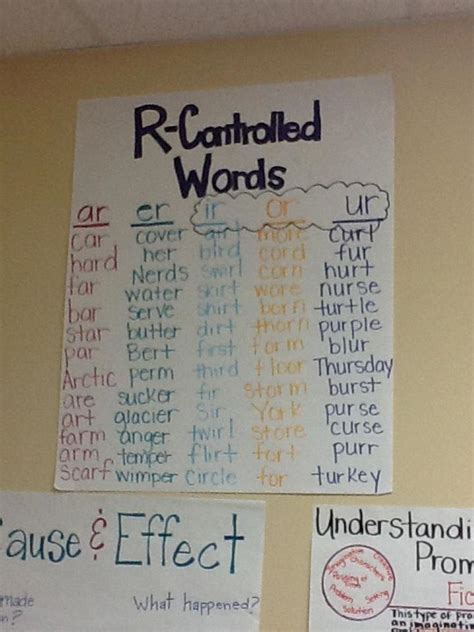 R-Controlled
Words
ar er ir or ur
car cover girl more curl
hard her bird cord fur
far Nerds swirl corn hurt
bar water skirt wore nurse
star serve shirt born turtle
par butter dirt thorn purple
Arctic Bert first form blur
are perm third floor Thursday
art sucker fir storm burst
farm glacier Sir York purse
arm anger twirl store curse
scarf temper flirt fort purr
wimper circle for turkey
ause & Effect
made
What happened?
Understandi
Prom
Fic
Problem Setting
Solution
This type of pro
an imaginatio